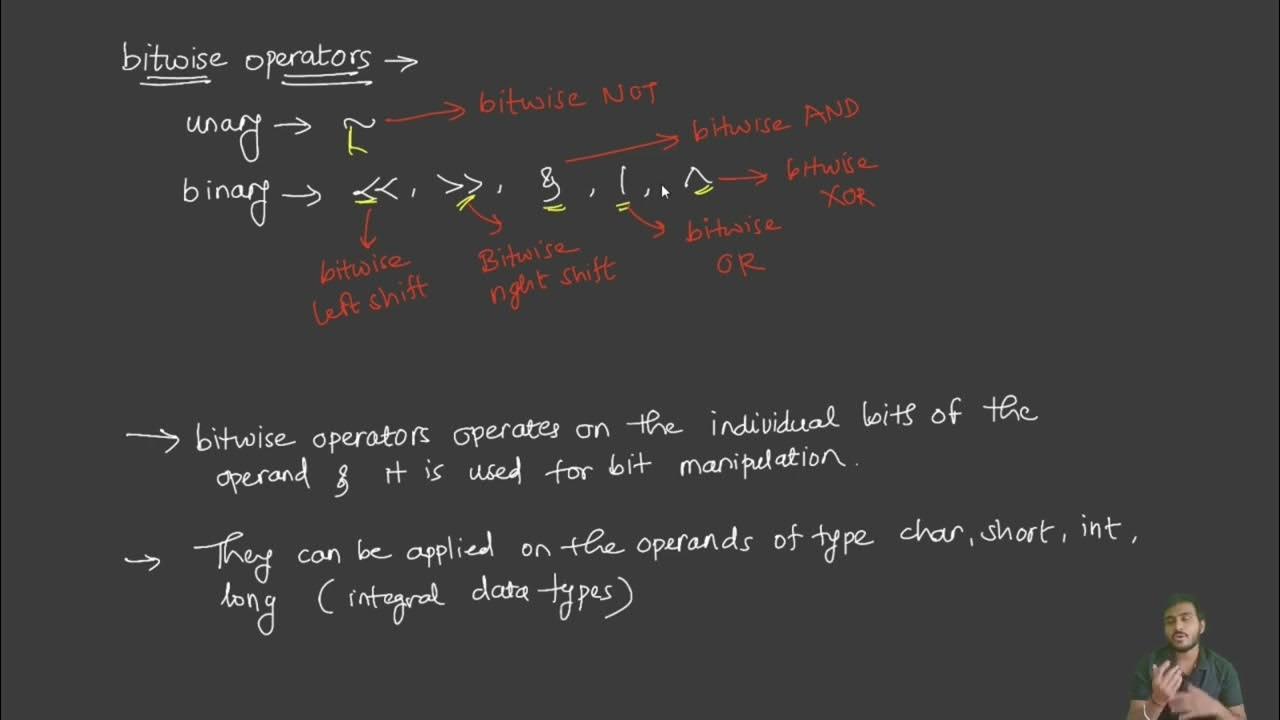 bitwise operators →
unary → ~ → bitwise NOT
bitwise AND
binary → <<, >>, &, |, ^ → bitwise
XOR
bitwise
left shift
Bitwise
right shift
bitwise
OR
→ bitwise operators operates on the individual bits of the
operand & it is used for bit manipulation.
→ They can be applied on the operands of type char, short, int,
long (integral data types)